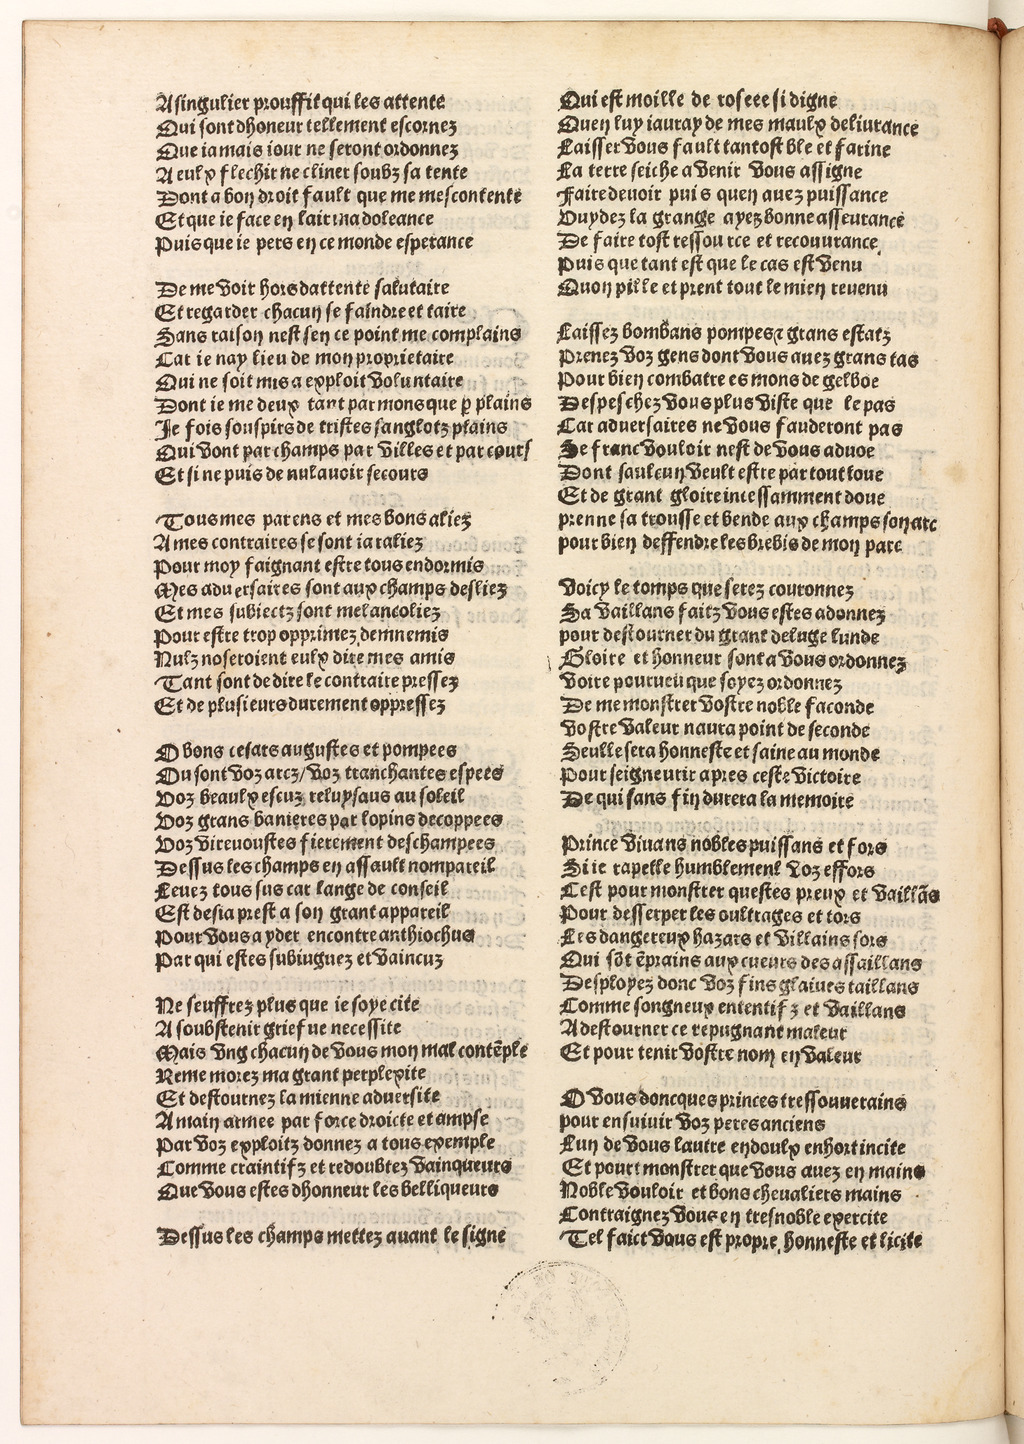 A singulier prouffit qui les attente
Qui sont dhoneur tellement escornez
Que iamais iour ne seront ordonnez
A eulx flechir ne cliner soubz sa tente
Dont a bon droit fault que me mescontente
Et que ie face en lair ma doleance
Puis que ie pers en ce monde esperance
De me voir hors dattente salutaire
Et regarder chacun se faindre et taire
Sans raison nest sen ce point me complains
Car ie nay lieu de mon proprietaire
Qui ne soit mis a exploit voluntaire
Dont ie me deux tant par mons que p plains
Je fois souspirs de tristes sanglotz plains
Qui vont par champs par villes et par cours
Et si ne puis de nul auoir secours
Tous mes parens et mes bons aliez
A mes contraires se sont ia raliez
Pour moy faignant estre tous endormis
Mes aduersaires sont aux champs desliez
Et mes subiectz sont melancoliez
Pour estre trop opprimez demnemis
Nulz noseroient eulx dire mes amis
Tant sont de dire le contraire pressez
Et de plusieurs durement oppressez
O bons cesars augustes et pompees
Ou sont voz arcz/voz tranchantes espees
Voz beaulx escuz reluysaus au soleil
Voz grans banieres par lopins decoppees
Voz vireuoustes fierement deschampees
Dessus les champs en assault nompareil
Leuez tous sus car lange de conseil
Est desia prest a son grant appareil
Pour vous ayder encontre anthiochus
Par qui estes subiuguez et vaincuz
Ne seuffrez plus que ie soye cite
A soubstenir griefue necessite
Mais vng chacun de vous mon mal contēple
Reme morez ma grant perplexite
Et destournez la mienne aduersite
A main armee par force droicte et ampse
Par voz exploitz donnez a tous exemple
Comme craintifz et redoubtez vainqueurs
Que vous estes dhonneur les belliqueurs
Dessus les champs mettez auant le signe
Qui est moille de roseee si digne
Quen luy iauray de mes maulx deliurance
Laisser vous fault tantost ble et farine
La terre seiche a venir vous assigne
Faire deuoir puis quen auez puissance
Vuydez la grange ayez bonne asseurance
De faire tost ressource et recouurance
Puis que tant est que le cas est venu
Quon pille et prent tout le mien reuenu
Laissez bombans pompes ⁊ grans estatz
Prenez voz gens dont vous auez grans tas
Pour bien combatre es mons de gelboe
Despeschez vous plus viste que le pas
Car aduersaires ne vous fauderont pas
Se franc vouloir nest de vous aduoe
Dont saulcun veult estre par tout loue
Et de grant gloire incessamment doue
prenne sa trousse et bende aux champs son arc
pour bien deffendre les brebis de mon parc
Voicy le temps que serez couronnez
Sa vaillans faitz vous estes adonnez
pour destourner du grant deluge lunde
Gloire et honneur sont a vous ordonnez
Voire pourueu que soyez ordonnez
De me monstrer vostre noble faconde
Vostre valeur naura point de seconde
Seulle sera honneste et saine au monde
Pour seigneurir apres ceste victoire
De qui sans fin durera la memoire
Prince viuans nobles puissans et fors
Si ie rapelle humblement voz effors
Cest pour monstrer questes preux et vaillās
Pour desserper les oultrages et tors
Les dangereux hazars et villains sors
Qui sōt ēprains aux cueurs des assaillans
Desployez donc voz fins glaiues taillans
Comme songneux ententifz et vaillans
A destourner ce repugnant maleur
Et pour tenir vostre nom en valeur
O vous doncques princes tressouuerains
pour ensuiuir voz peres anciens
Lun de vous lautre en doulx enhort incite
Et pour monstrer que vous auez en mains
Noble vouloir et bons cheualiers mains
Contraignez vous en tresnoble exercite
Tel faict vous est propre, honneste et licite